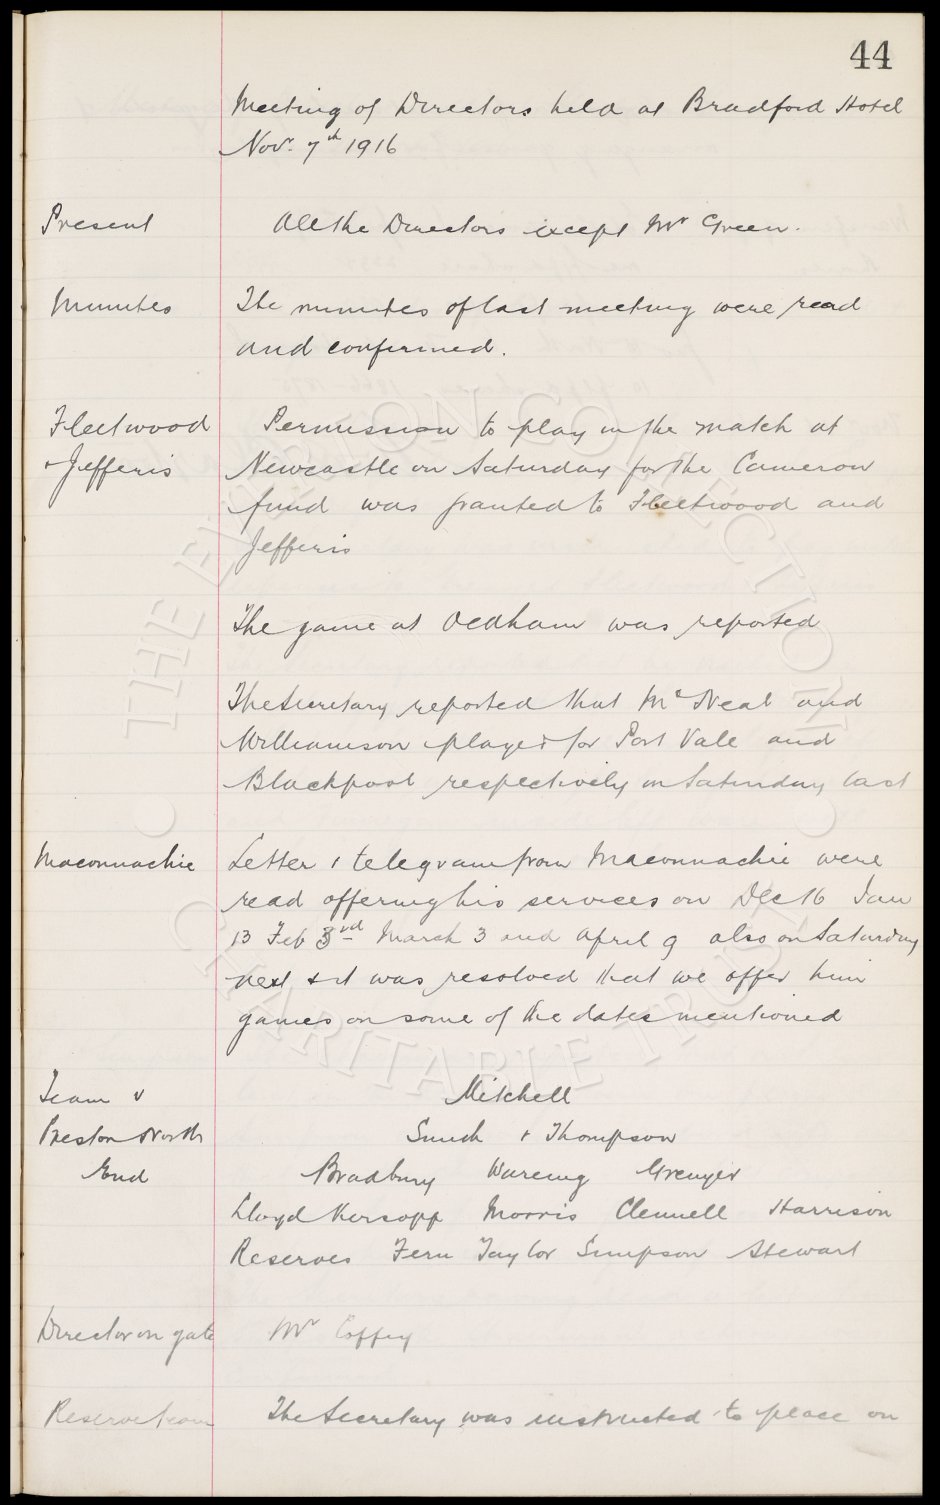 44
Meeting of Directors held at Bradford Hotel
Nov. 7th 1916
Present All the Directors except Mr Green.
Minutes The minutes of last meeting were read
and confirmed.
Fleetwood Permission to play in the match at
+ Jefferis Newcastle on Saturday for the Cameron
fund was granted to Fleetwood and
Jefferis
The game at Oldham was reported
The Secretary reported that McNeal and
Williamson played for Port Vale and
Blackpool respectively on Saturday last
Maconnachie Letter + telegram from Maconnachie were
read offering his services on Dec 16 Jan
13 Feb 3rd March 3 and April 9 also on Saturday
next + it was resolved that we offer him
games on some of the dates mentioned
Team v Mitchell
Preston North Smith + Thompson
End Bradbury Wareing Grenyer
Lloyd Kirsopp Morris Clennell Harrison
Reserves Fern Taylor Simpson Stewart
Director on gate Mr Coffey
Reserve team The Secretary was instructed to place on
THE EVERTON COLLECTION
CHARITABLE TRUST